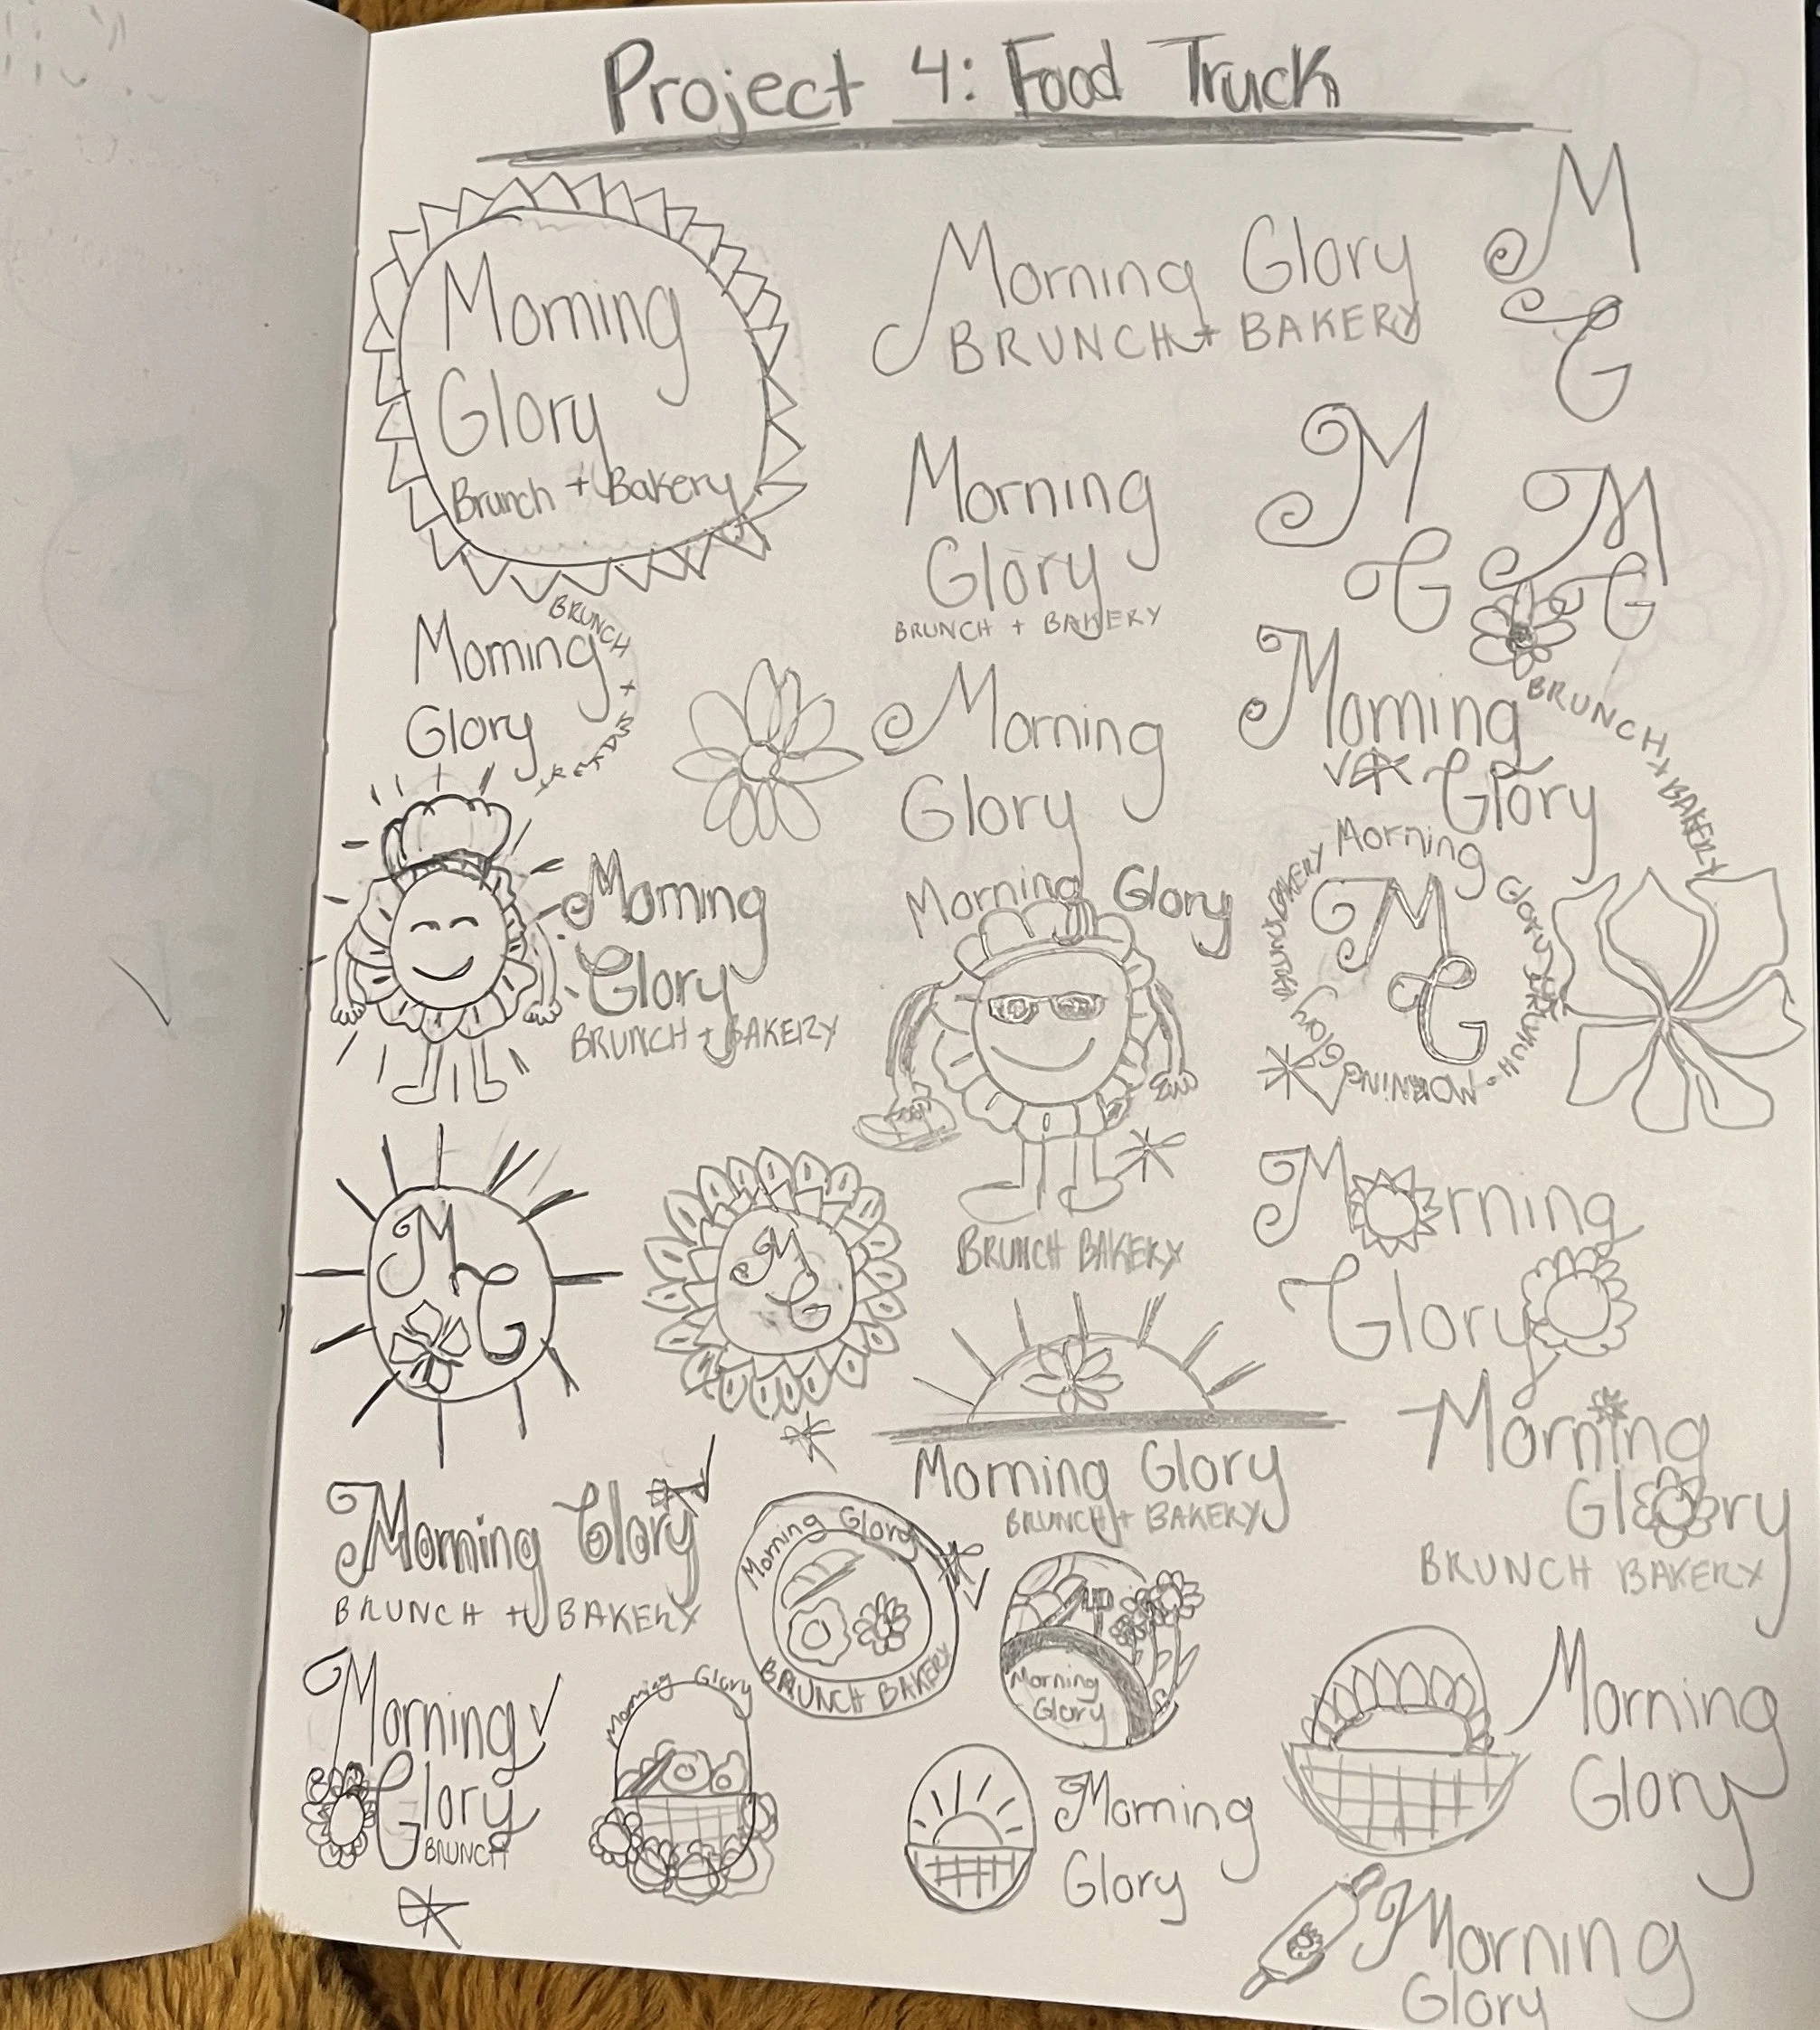 Project 4: Food Truck
Morning
Glory
Brunch + Bakery
Morning Glory
BRUNCH + BAKERY
M
G
Morning
Glory
BRUNCH + BAKERY
M
G
M
G
Morning
Glory
BRUNCH +
Morning
Glory
Morning
Glory
BRUNCH + BAKERY
Morning
Glory
BRUNCH + BAKERY
Morning Glory
BRUNCH BAKERY
Morning Glory BRUNCH • MORNING Glory BRUNCH BAKERY
M
G
M
G
M
G
Morning
Glory
Morning Glory
BRUNCH + BAKERY
Morning
Glory
BRUNCH BAKERY
Morning Glory
BRUNCH + BAKERY
Morning Glory
BRUNCH BAKERY
Morning
Glory
Morning
Glory
BRUNCH
Morning Glory
Morning
Glory
Morning
Glory
Morning
Glory